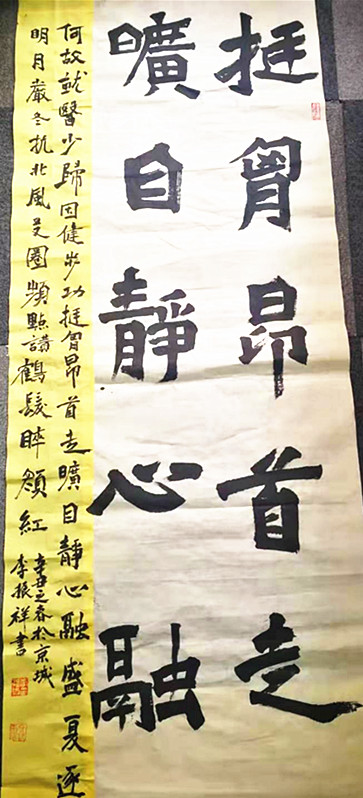 挺胷昂首走
曠目靜心融
何故就醫少歸因健步功挺胷昂首走曠目靜心融盛夏逐
明月嚴冬抗北風友圈頻點讚鶴髮睟顏紅
辛丑之春於京城
李振祥書